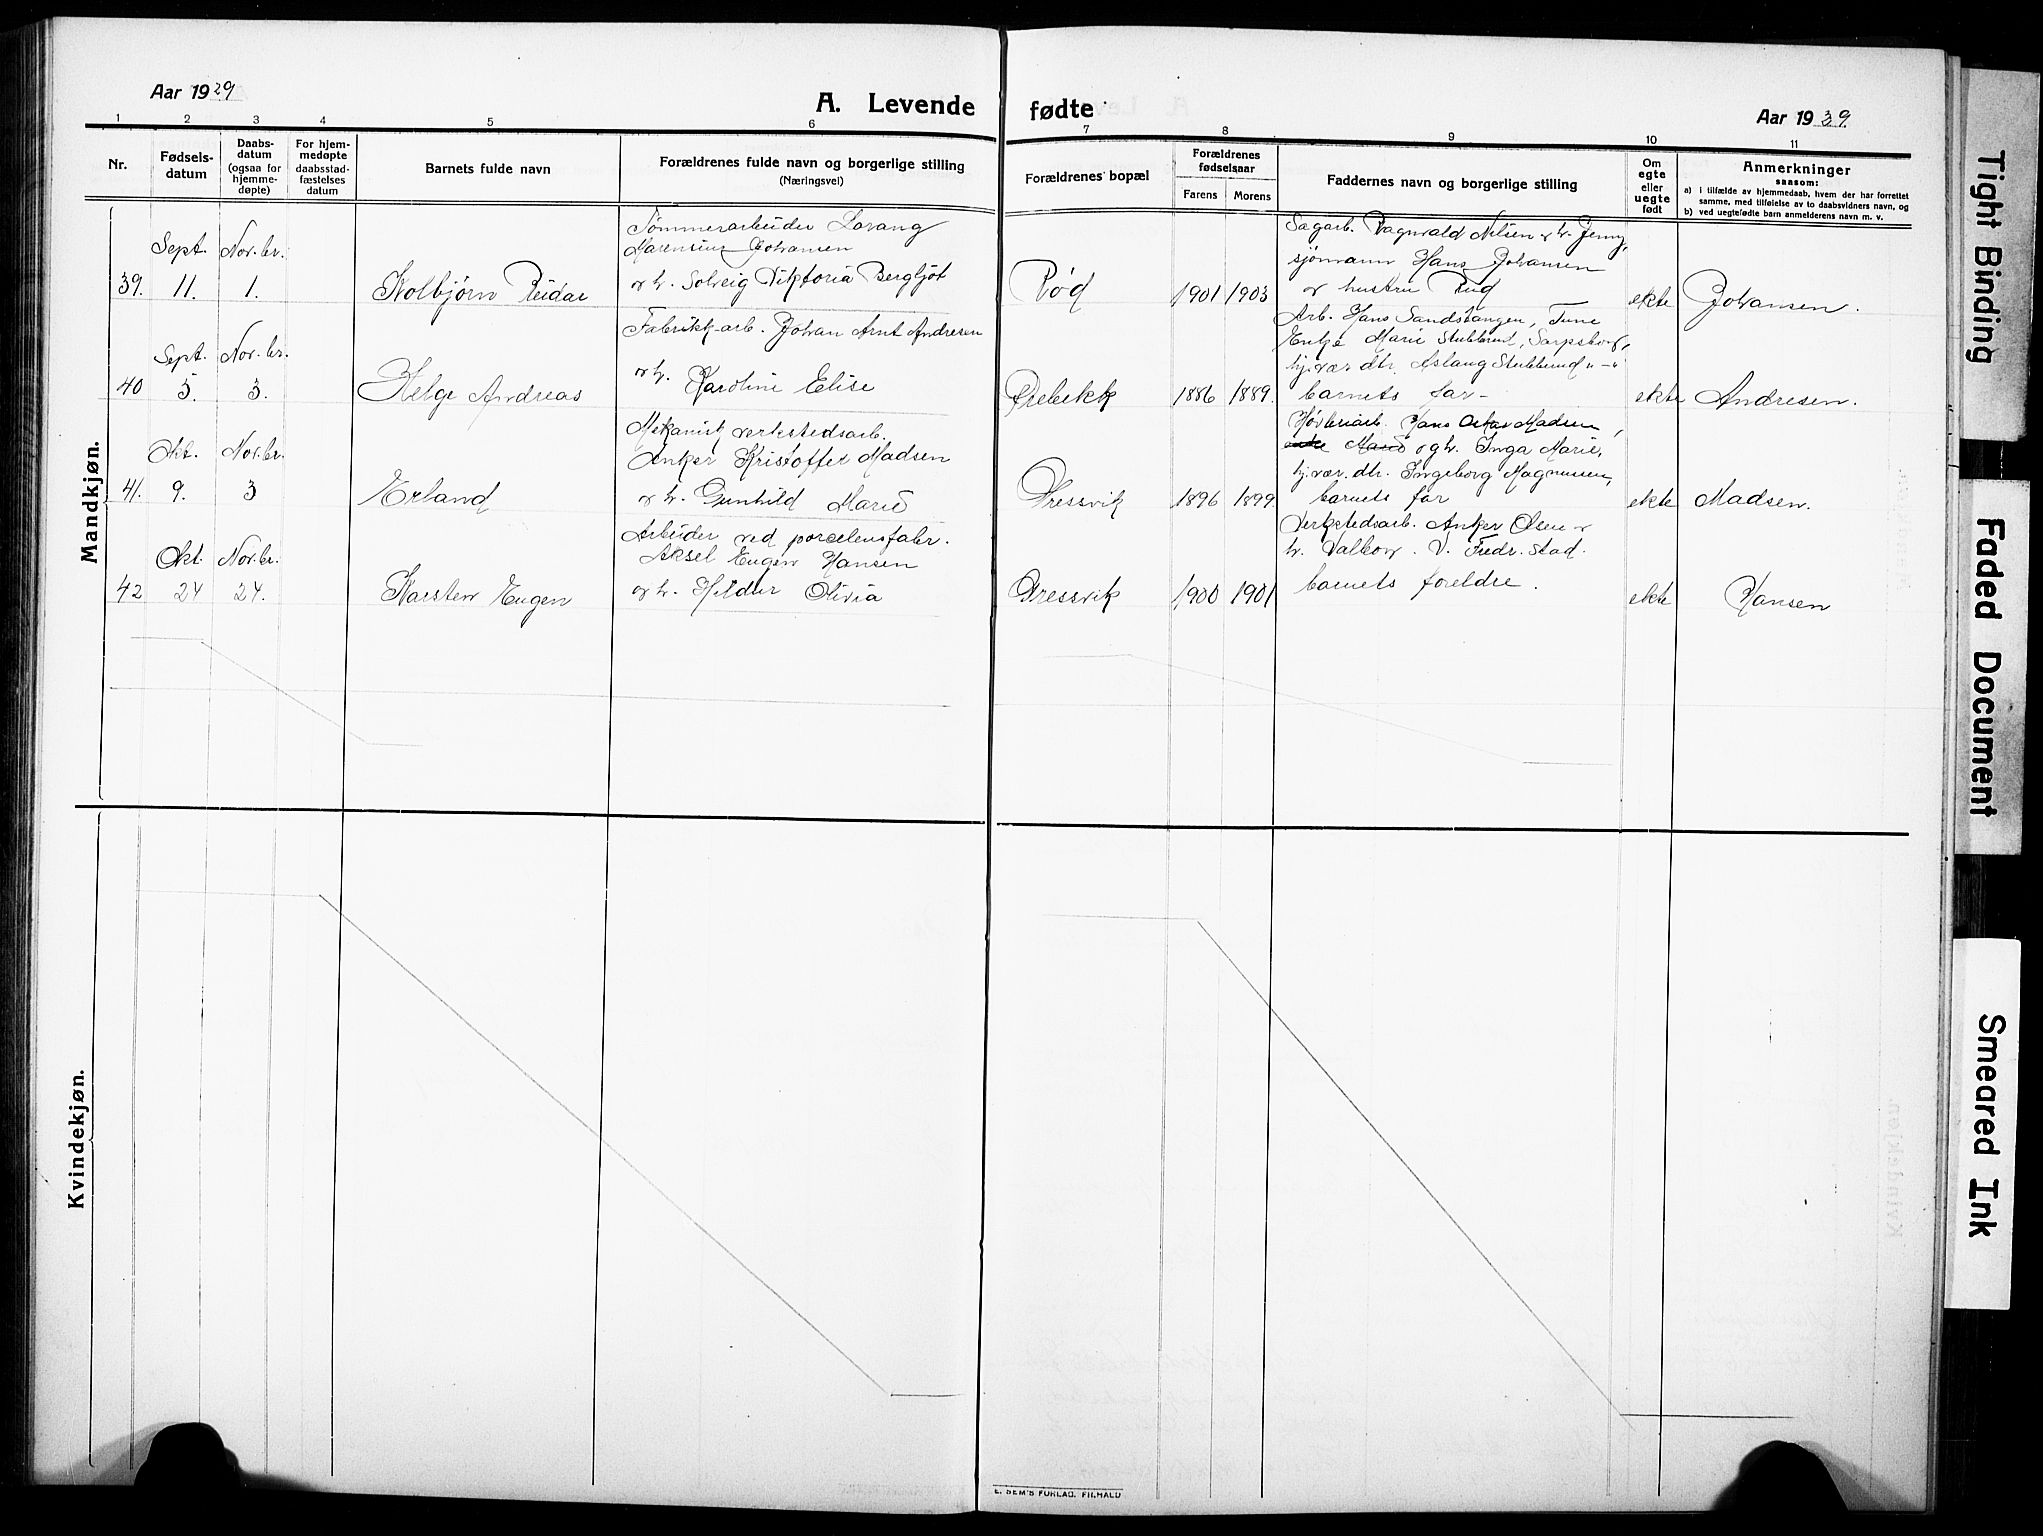 Aar 1929
A. Levende fødte
Aar 1929
1 2 3 4 5 6 7 8 9 10 11
Nr.
Fødsels-
datum
Daabs-
datum
(ogsaa for
hjemme-
døpte)
For hjem-
medøpte
daabsstad-
fæstelses
datum
Barnets fulde navn
Forældrenes fulde navn og borgerlige stilling
(Næringsvei)
Forældrenes bopæl
Forældrenes
fødselsaar
Farens Morens
Faddernes navn og borgerlige stilling
Om
egte
eller
uegte
født
Anmerkninger
saasom:
a) i tilfælde av hjemmedaab, hvem der har forrettet
samme, med tilføielse av to daabsvidners navn, og
b) ved uegtefødte barn anmelderens navn m. v.
Mandkjøn.
39. Sept. 11. Nov.br. 1.
Kolbjørn Reidar
Tømmerarbeider Lorang
Marensius Johansen
og h. Solveig Viktoria Bergljot
Rød
1901 1903
Sagarb. Ragnvald Nilsen og h. Jenny,
sjømann Hans Johansen
og hustru Rud
ekte
Johansen.
40 Sept. 5. Nov.br. 3.
Helge Andreas
Fabrikk-arb. Johan Arnt Andresen
og h. Karoline Elise
Ørebekk
1886 1889.
Arb. Hans Sandstangen, Tune
Enke Marie Stubberud, Sarpsborg,
hj.vær. dtr. Aslaug Stubberud "-"
barnets far-
ekte
Andresen.
41. Okt. 9. Nov.br. 3
Erland
Mekanisk verkstedsarb.
Anker Kristoffer Madsen
og h. Gunhild Marie
Gressvik
1896 1899.
Høvleriarb. Hans Oskar Madsen,
og h. Inga Marie,
hj.vær. dtr. Ingeborg Magnussen,
barnets far
ekte
Madsen.
42 Okt. 24 Nov.br. 24.
Karsten Eugen
Arbeider ved porcelensfabr.
Aksel Eugen Hansen
og h. Hildur Olivia
Gressvik
1900 1901
Verkstedsarb. Anker Olsen og
h. Valborg. V. Fredr.stad.
barnets foreldre.
ekte
Hansen
Kvindekjøn.
E. SEM'S FORLAG. FR.HALD
Tight Binding
Faded Document
Smeared Ink